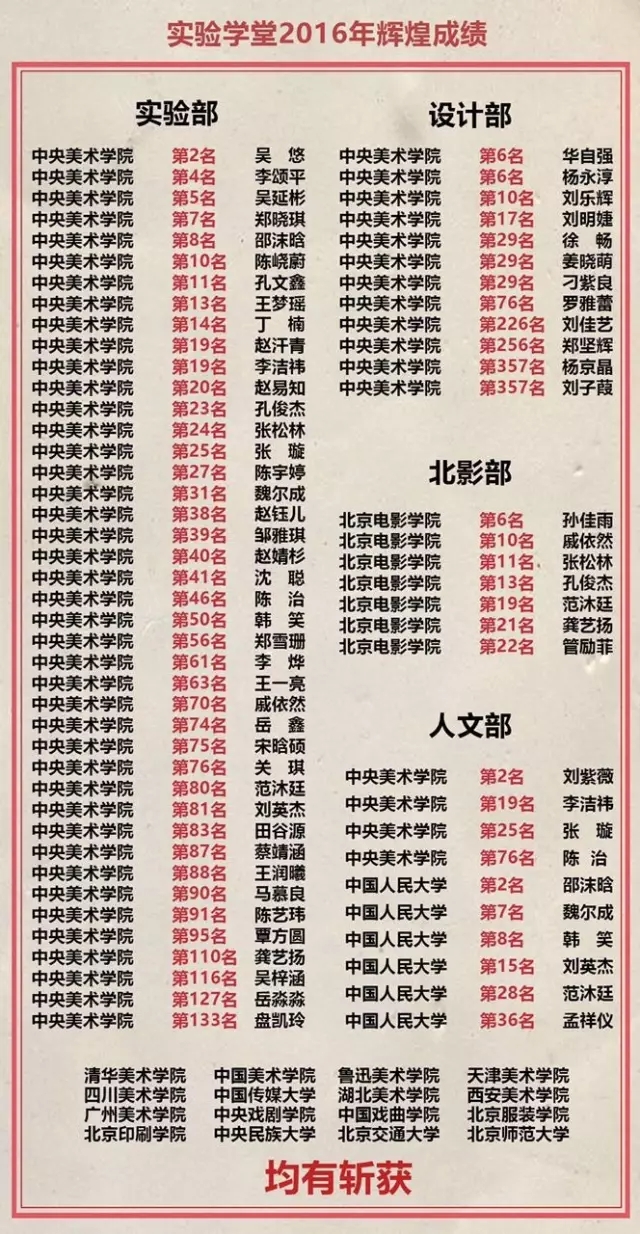 实验学堂2016年辉煌成绩
实验部
中央美术学院 第2名 吴 悠
中央美术学院 第4名 李颂平
中央美术学院 第5名 吴延彬
中央美术学院 第7名 郑晓琪
中央美术学院 第8名 邵沫晗
中央美术学院 第10名 陈峣蔚
中央美术学院 第11名 孔文鑫
中央美术学院 第13名 王梦瑶
中央美术学院 第14名 丁 楠
中央美术学院 第19名 赵汗青
中央美术学院 第19名 李洁祎
中央美术学院 第20名 赵易知
中央美术学院 第23名 孔俊杰
中央美术学院 第24名 张松林
中央美术学院 第25名 张 璇
中央美术学院 第27名 陈宇婷
中央美术学院 第31名 魏尔成
中央美术学院 第38名 赵钰儿
中央美术学院 第39名 邹雅琪
中央美术学院 第40名 赵婧杉
中央美术学院 第41名 沈 聪
中央美术学院 第46名 陈 治
中央美术学院 第50名 韩 笑
中央美术学院 第56名 郑雪珊
中央美术学院 第61名 李 烨
中央美术学院 第63名 王一亮
中央美术学院 第70名 戚依然
中央美术学院 第74名 岳 鑫
中央美术学院 第75名 宋晗硕
中央美术学院 第76名 关 琪
中央美术学院 第80名 范沐廷
中央美术学院 第81名 刘英杰
中央美术学院 第83名 田谷源
中央美术学院 第87名 蔡靖涵
中央美术学院 第88名 王润曦
中央美术学院 第90名 马慕良
中央美术学院 第91名 陈艺玮
中央美术学院 第95名 覃方圆
中央美术学院 第110名 龚艺扬
中央美术学院 第116名 吴梓涵
中央美术学院 第127名 岳淼淼
中央美术学院 第133名 盘凯玲
设计部
中央美术学院 第6名 华自强
中央美术学院 第6名 杨永淳
中央美术学院 第10名 刘乐辉
中央美术学院 第17名 刘明婕
中央美术学院 第29名 徐 畅
中央美术学院 第29名 姜晓萌
中央美术学院 第29名 刁紫良
中央美术学院 第76名 罗雅蕾
中央美术学院 第226名 刘佳艺
中央美术学院 第256名 郑坚辉
中央美术学院 第357名 杨京晶
中央美术学院 第357名 刘子葭
北影部
北京电影学院 第6名 孙佳雨
北京电影学院 第10名 戚依然
北京电影学院 第11名 张松林
北京电影学院 第13名 孔俊杰
北京电影学院 第19名 范沐廷
北京电影学院 第21名 龚艺扬
北京电影学院 第22名 管励菲
人文部
中央美术学院 第2名 刘紫薇
中央美术学院 第19名 李洁祎
中央美术学院 第25名 张 璇
中央美术学院 第76名 陈 治
中国人民大学 第2名 邵沫晗
中国人民大学 第7名 魏尔成
中国人民大学 第8名 韩 笑
中国人民大学 第15名 刘英杰
中国人民大学 第28名 范沐廷
中国人民大学 第36名 孟祥仪
清华美术学院 中国美术学院 鲁迅美术学院 天津美术学院
四川美术学院 中国传媒大学 湖北美术学院 西安美术学院
广州美术学院 中央戏剧学院 中国戏曲学院 北京服装学院
北京印刷学院 中央民族大学 北京交通大学 北京师范大学
均有斩获